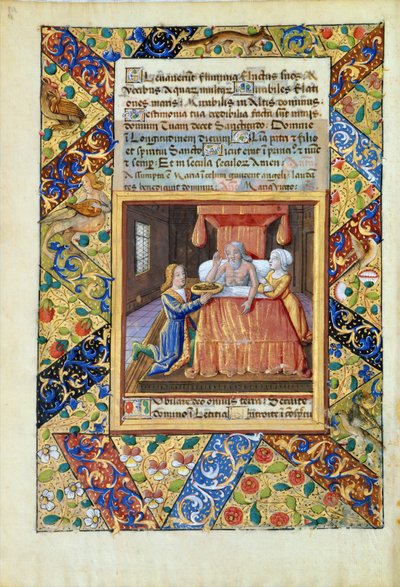 Elevaverunt flumina fluctus suos A
vocibus aquarum multarum Mirabiles elati
ones maris: Mirabilis in Altis dominus.
Testimonia tua credibilia facta sunt nimis
domum Tuam decet Sanctitudo: Domine
I Longitudinem dierum Gla patri et filio
et spiritui Sancto Sicut erat i pn⁹ et nūc
et semp: Et in secula seculor Amen
Assumpta ē Maria i celum gaudent angeli laudā
tes benedicunt dominum Maria virgo
Jubilate deo omnis terra: Servite
domino i Letitia Introite i cōspectu